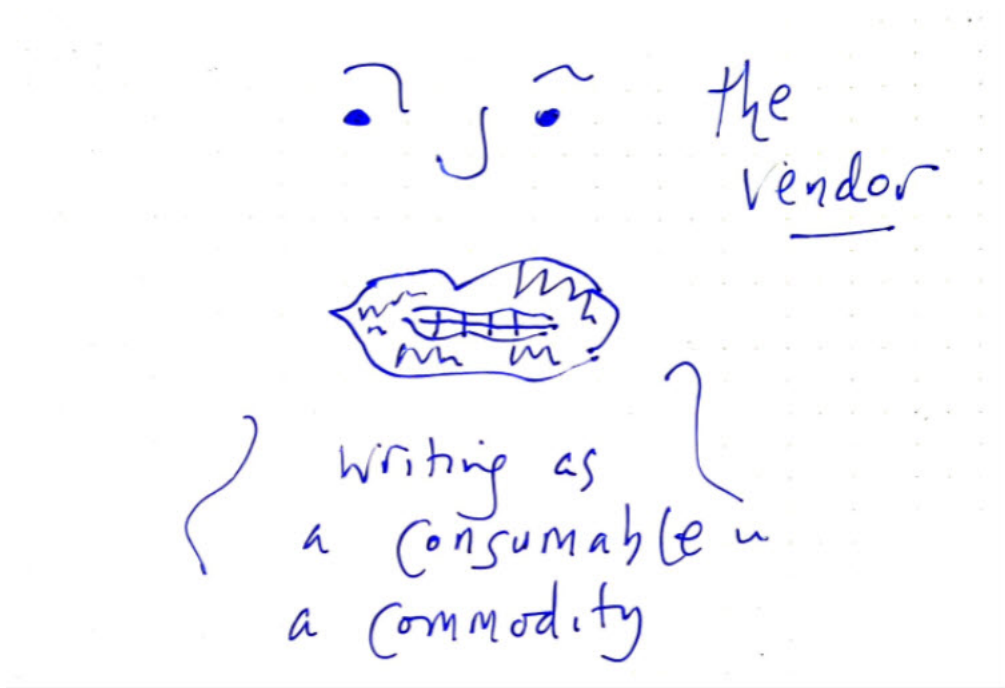 the
vendor
writing as
a consumable
a commodity